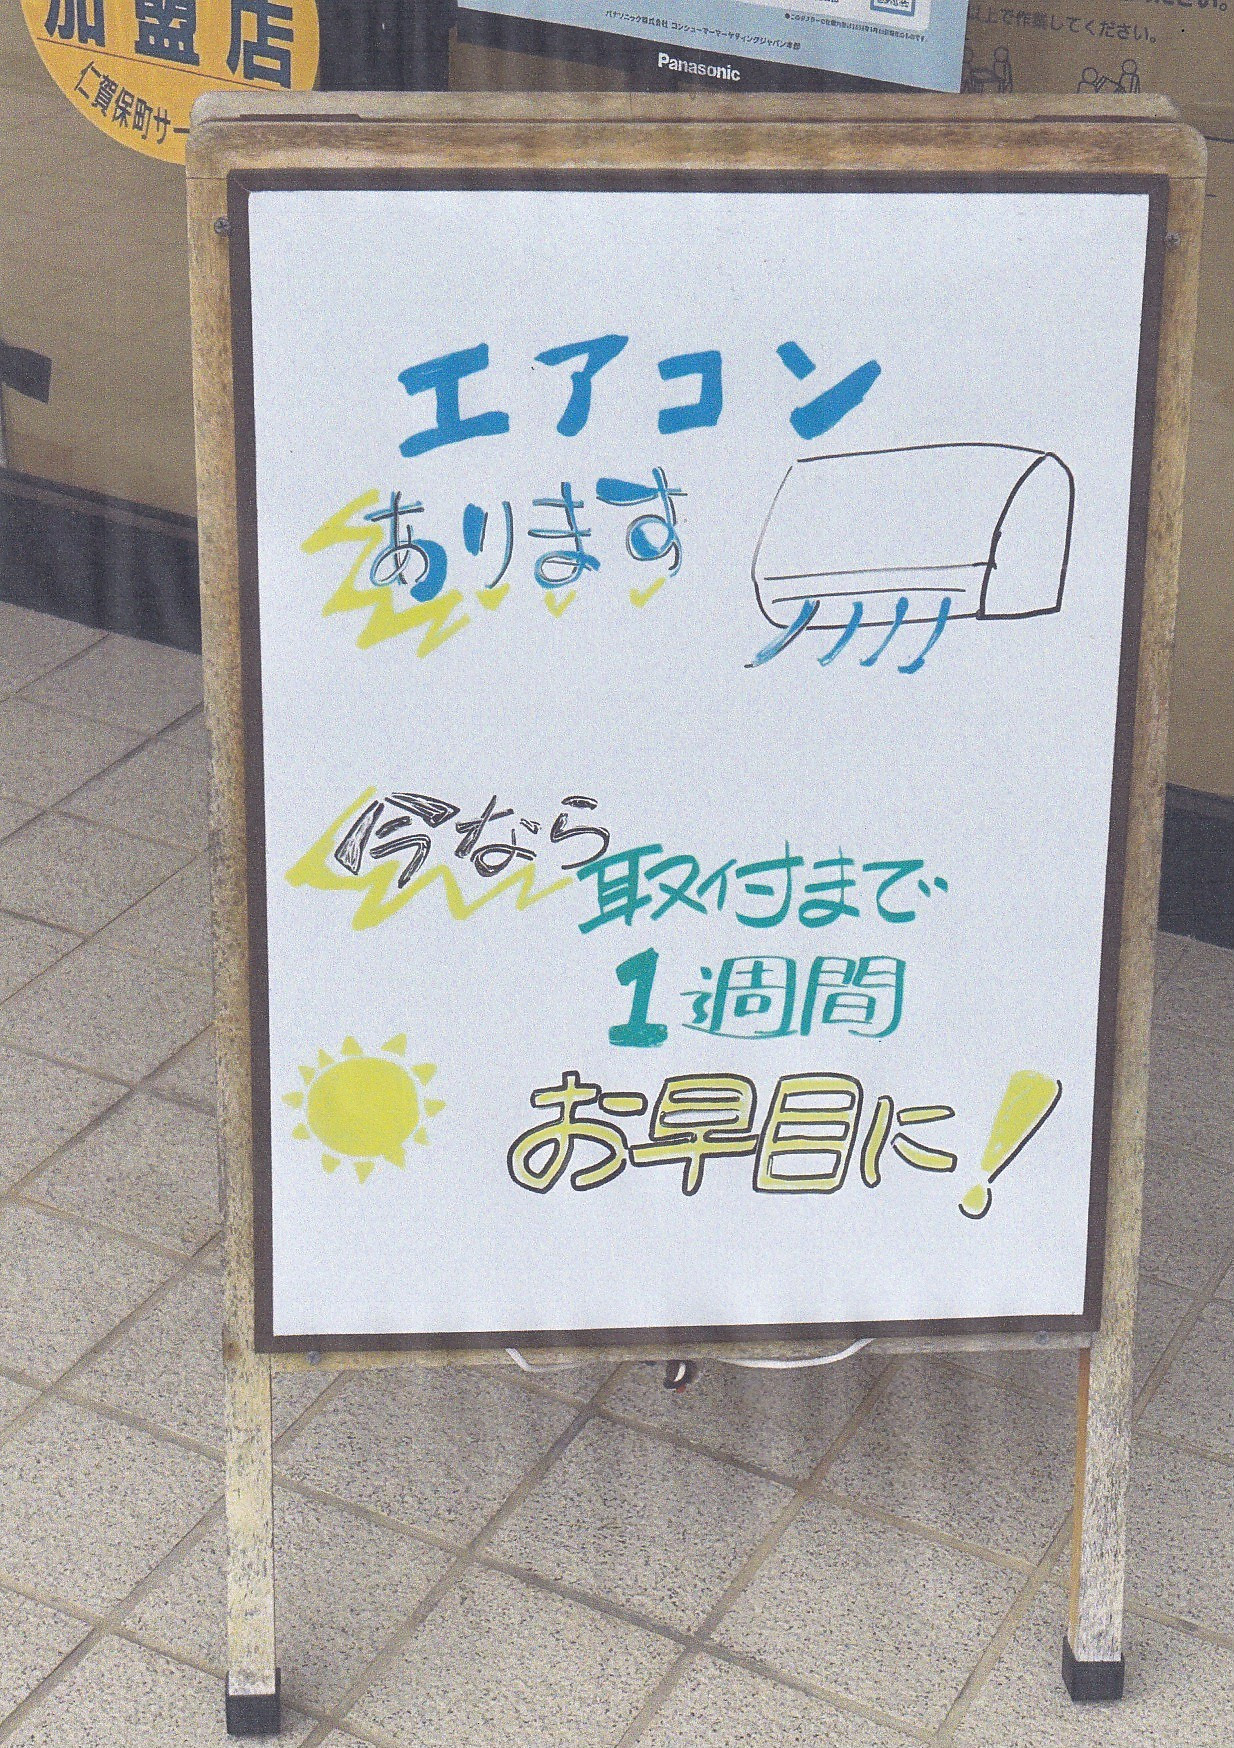 加盟店
仁賀保町サー
パナソニック株式会社 コンシューマーマーケティングジャパン本部
Panasonic
以上で作業してください。
エアコン
あります
今なら
取付まで
1週間
お早目に!